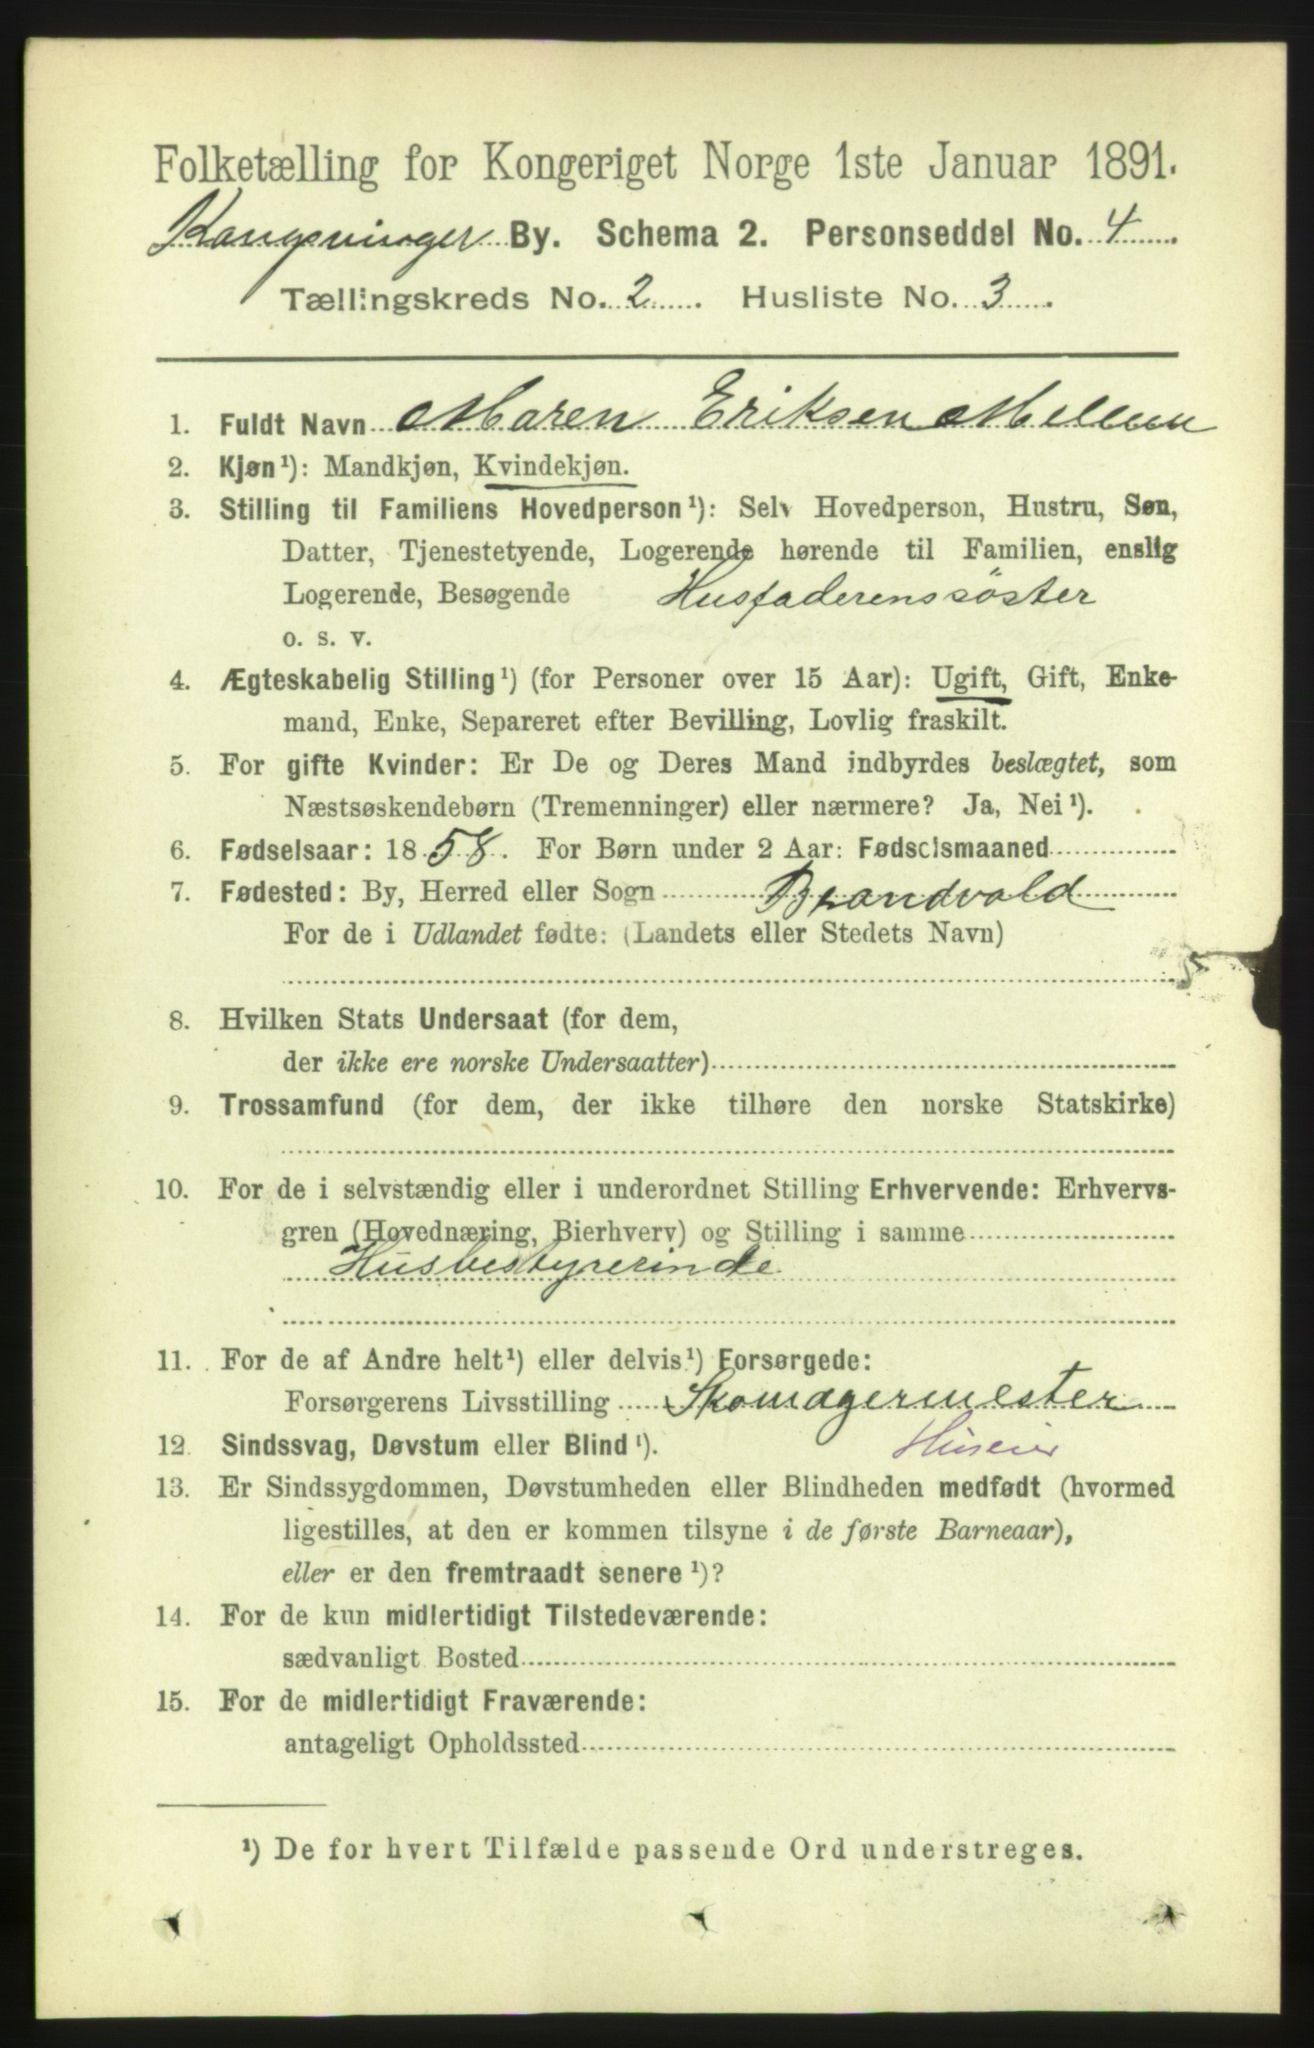 Folketælling for Kongeriget Norge 1ste Januar 1891.
Kongsvinger By. Schema 2. Personseddel No. 4
Tællingskreds No. 2 Husliste No. 3
1. Fuldt Navn Maren Eriksen Mellem
2. Kjøn¹): Mandkjøn, Kvindekjøn.
3. Stilling til Familiens Hovedperson¹): Selv Hovedperson, Hustru, Søn,
Datter, Tjenestetyende, Logerende hørende til Familien, enslig
Logerende, Besøgende Husfaderens söster
o. s. v.
4. Ægteskabelig Stilling¹) (for Personer over 15 Aar): Ugift, Gift, Enke-
mand, Enke, Separeret efter Bevilling, Lovlig fraskilt.
5. For gifte Kvinder: Er De og Deres Mand indbyrdes beslægtet, som
Næstsøskendebørn (Tremenninger) eller nærmere? Ja, Nei¹).
6. Fødselsaar: 1858. For Børn under 2 Aar: Fødselsmaaned
7. Fødested: By, Herred eller Sogn Brandvold
For de i Udlandet fødte: (Landets eller Stedets Navn)
8. Hvilken Stats Undersaat (for dem,
der ikke ere norske Undersaatter)
9. Trossamfund (for dem, der ikke tilhøre den norske Statskirke)
10. For de i selvstændig eller i underordnet Stilling Erhvervende: Erhvervs-
gren (Hovednæring, Bierhverv) og Stilling i samme
Husbestyrerinde
11. For de af Andre helt¹) eller delvis¹) Forsørgede:
Forsørgerens Livsstilling Skomagermester
12. Sindssvag, Døvstum eller Blind¹). Huseier
13. Er Sindssygdommen, Døvstumheden eller Blindheden medfødt (hvormed
ligestilles, at den er kommen tilsyne i de første Barneaar),
eller er den fremtraadt senere¹)?
14. For de kun midlertidigt Tilstedeværende:
sædvanligt Bosted
15. For de midlertidigt Fraværende:
antageligt Opholdssted
¹) De for hvert Tilfælde passende Ord understreges.